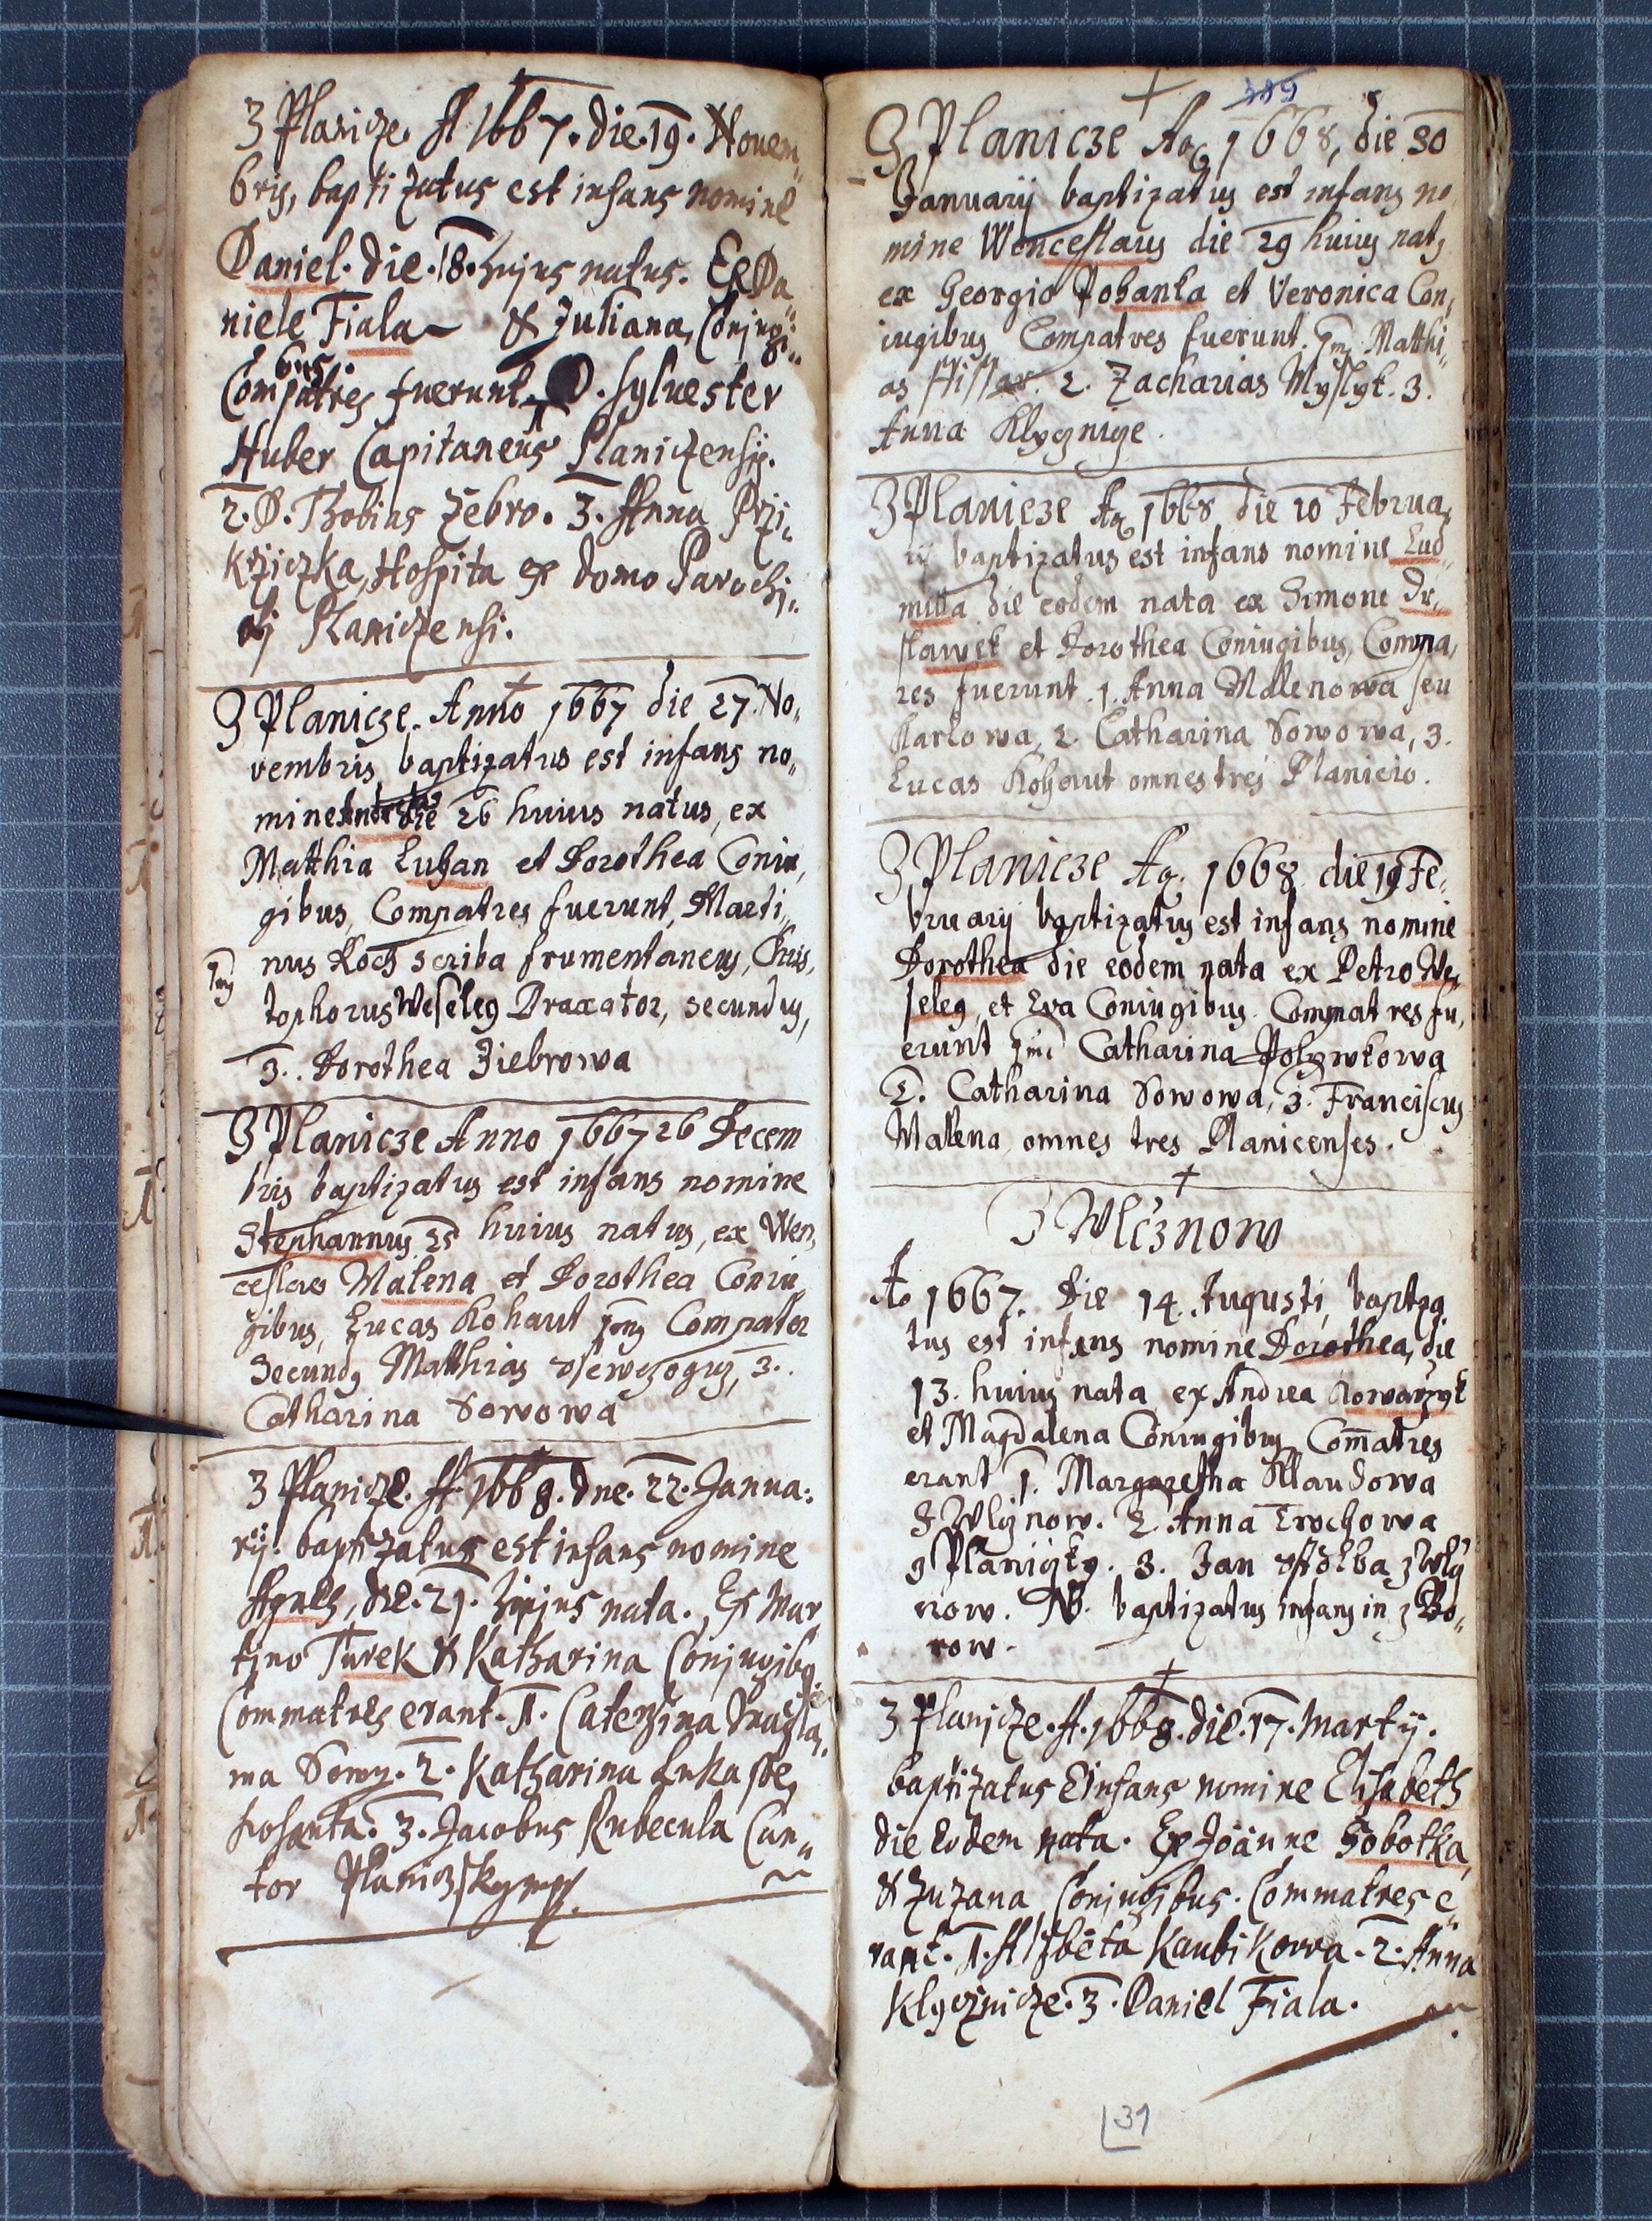 Z Planicze. A. 1667. die. 19. Nouem„
bris, baptizatus est infans nomine
Daniel. die. 18. hujus natus. Ex Da„
niele Fiala & Juliana, Conjugi„
bus.
Compatres fuerunt. 1. D. Sylvester
Huber Capitaneus Planiczensis.
2. D. Thobias Zebro. 3. Anna Przi„
krziczka, Hospita ex domo Parochi„
Planiczensi.
Z Planicze. Anno 1667 die 27. No„
vembris baptizatus est infans no„
mine die 26 huius natus, ex
Matthia Luhan et Dorothea Coniu„
gibus, Compatres fuerunt, Marti„
nus Koch scriba frumentaneus, Chris„
tophorus Weseley Braxator, secundus,
3. Dorothea Ziebrowa
Z Planicze Anno 1667 26 Decem
bris baptizatus est infans nomine
Stephannus 25 huius natus, ex Wen„
ceslao Malena et Dorothea Coniu„
gibus, Lucas Kohaut 1mus Compater
Secundus Matthias 3.
Catharina Sowowa
Z Planicze. A. 1668. die. 22. Janua:
rij. baptizatus est infans nomine
Agnes, die. 21. hujus nata. Ex Mar
tino Turek & Katharina Conjugibus
Commatres erant. 1. Caterzina
ma Sowy. 2. Katharina Luka
3. Jacobus Rubecula Can„
tor
389
Z Planicze Ao 1668, die 30
Januarij baptizatus est infans no
mine Wenceslaus die 29 huius natus
ex Georgio Pohanka et Veronica Con„
iugibus Compatres fuerunt. 1mus Matthi„
as 2. Zacharias Myslyk. 3.
Anna Klycznize.
Z Planicze Ao 1668 die 20 Februa„
ij baptizatus est infans nomine Lud„
milla die eodem nata ex Simone Dr„
slawek et Dorothea Coniugibus, Compa„
res fuerunt. 1. Anna Malenowa seu
Karlowa, 2. Catharina Sowowa, 3.
Lucas Kohaut omnes tres Planicio.
Z Planicze Ao. 1668 die 19 Fe„
bruarij baptizatus est infans nomine
Dorothea die eodem nata ex Petro We„
seley, et Eva Coniugibus. Compatres fu„
erunt 1ma Catharina Polywkowa
2. Catharina Sowowa, 3. Franciscus
Malena omnes tres Planicenses.
Z Wlcznow
Ao 1667. Die 14. Augusti, baptiza
tus est infans nomine Dorothea, die
13. huius nata ex Andrea Kowarzyk
et Magdalena Coniugibus, Comatres
erant 1. Margaretha Klaudowa
z Wlcznow. 2. Anna Trochowa
z Planiczky. 3. Jan z Wlcz
now. NB. baptizatus infans in z Bo„
row.
Z Planicze. A. 1668. die. 17. Martij.
baptizatus E infans nomine Elisabeth
die eodem nata. Ex Joanne Sobotka
& Zuzana, Conjugibus. Commatres e„
rant. 1. Alzbeta Kaubikowa. 2. Anna
Klycznicze. 3. Daniel Fiala.
31